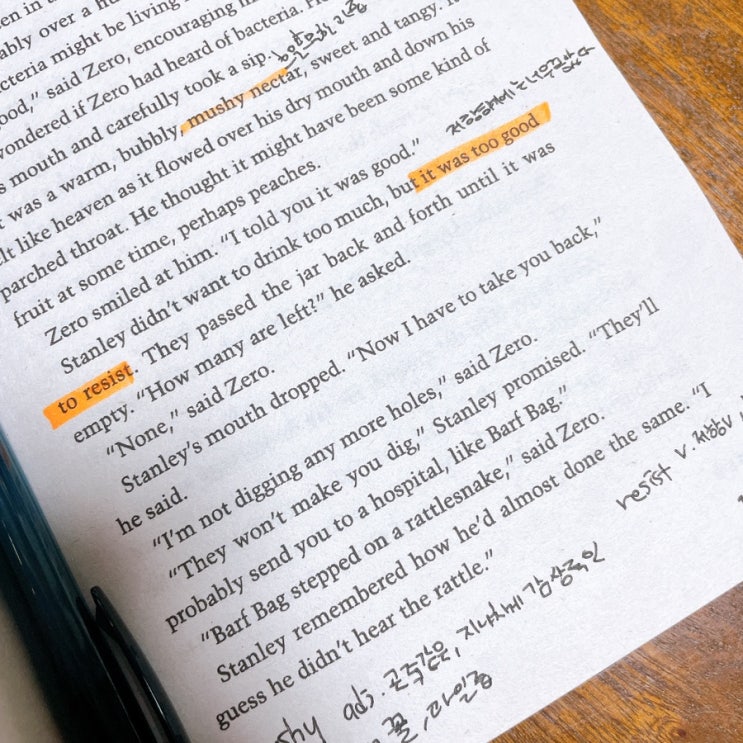 en in
ably over a hu
acteria might be living
ood," said Zero, encouraging hi
wondered if Zero had heard of bacteria. H
s mouth and carefully took a sip.
t was a warm, bubbly, mushy nectar, sweet and tangy. It
elt like heaven as it flowed over his dry mouth and down his
parched throat. He thought it might have been some kind of
fruit at some time, perhaps peaches.
Zero smiled at him. "I told you it was good."
Stanley didn't want to drink too much, but it was too good
to resist. They passed the jar back and forth until it was
empty. "How many are left?" he asked.
"None," said Zero.
Stanley's mouth dropped. "Now I have to take you back,"
he said.
"I'm not digging any more holes," said Zero.
"They won't make you dig," Stanley promised. "They'll
probably send you to a hospital, like Barf Bag."
"Barf Bag stepped on a rattlesnake," said Zero.
Stanley remembered how he'd almost done the same. "I
guess he didn't hear the rattle."
resist v.
shy adj. 곤죽같은, 지나치게 감상적인
꿀, 과일즙